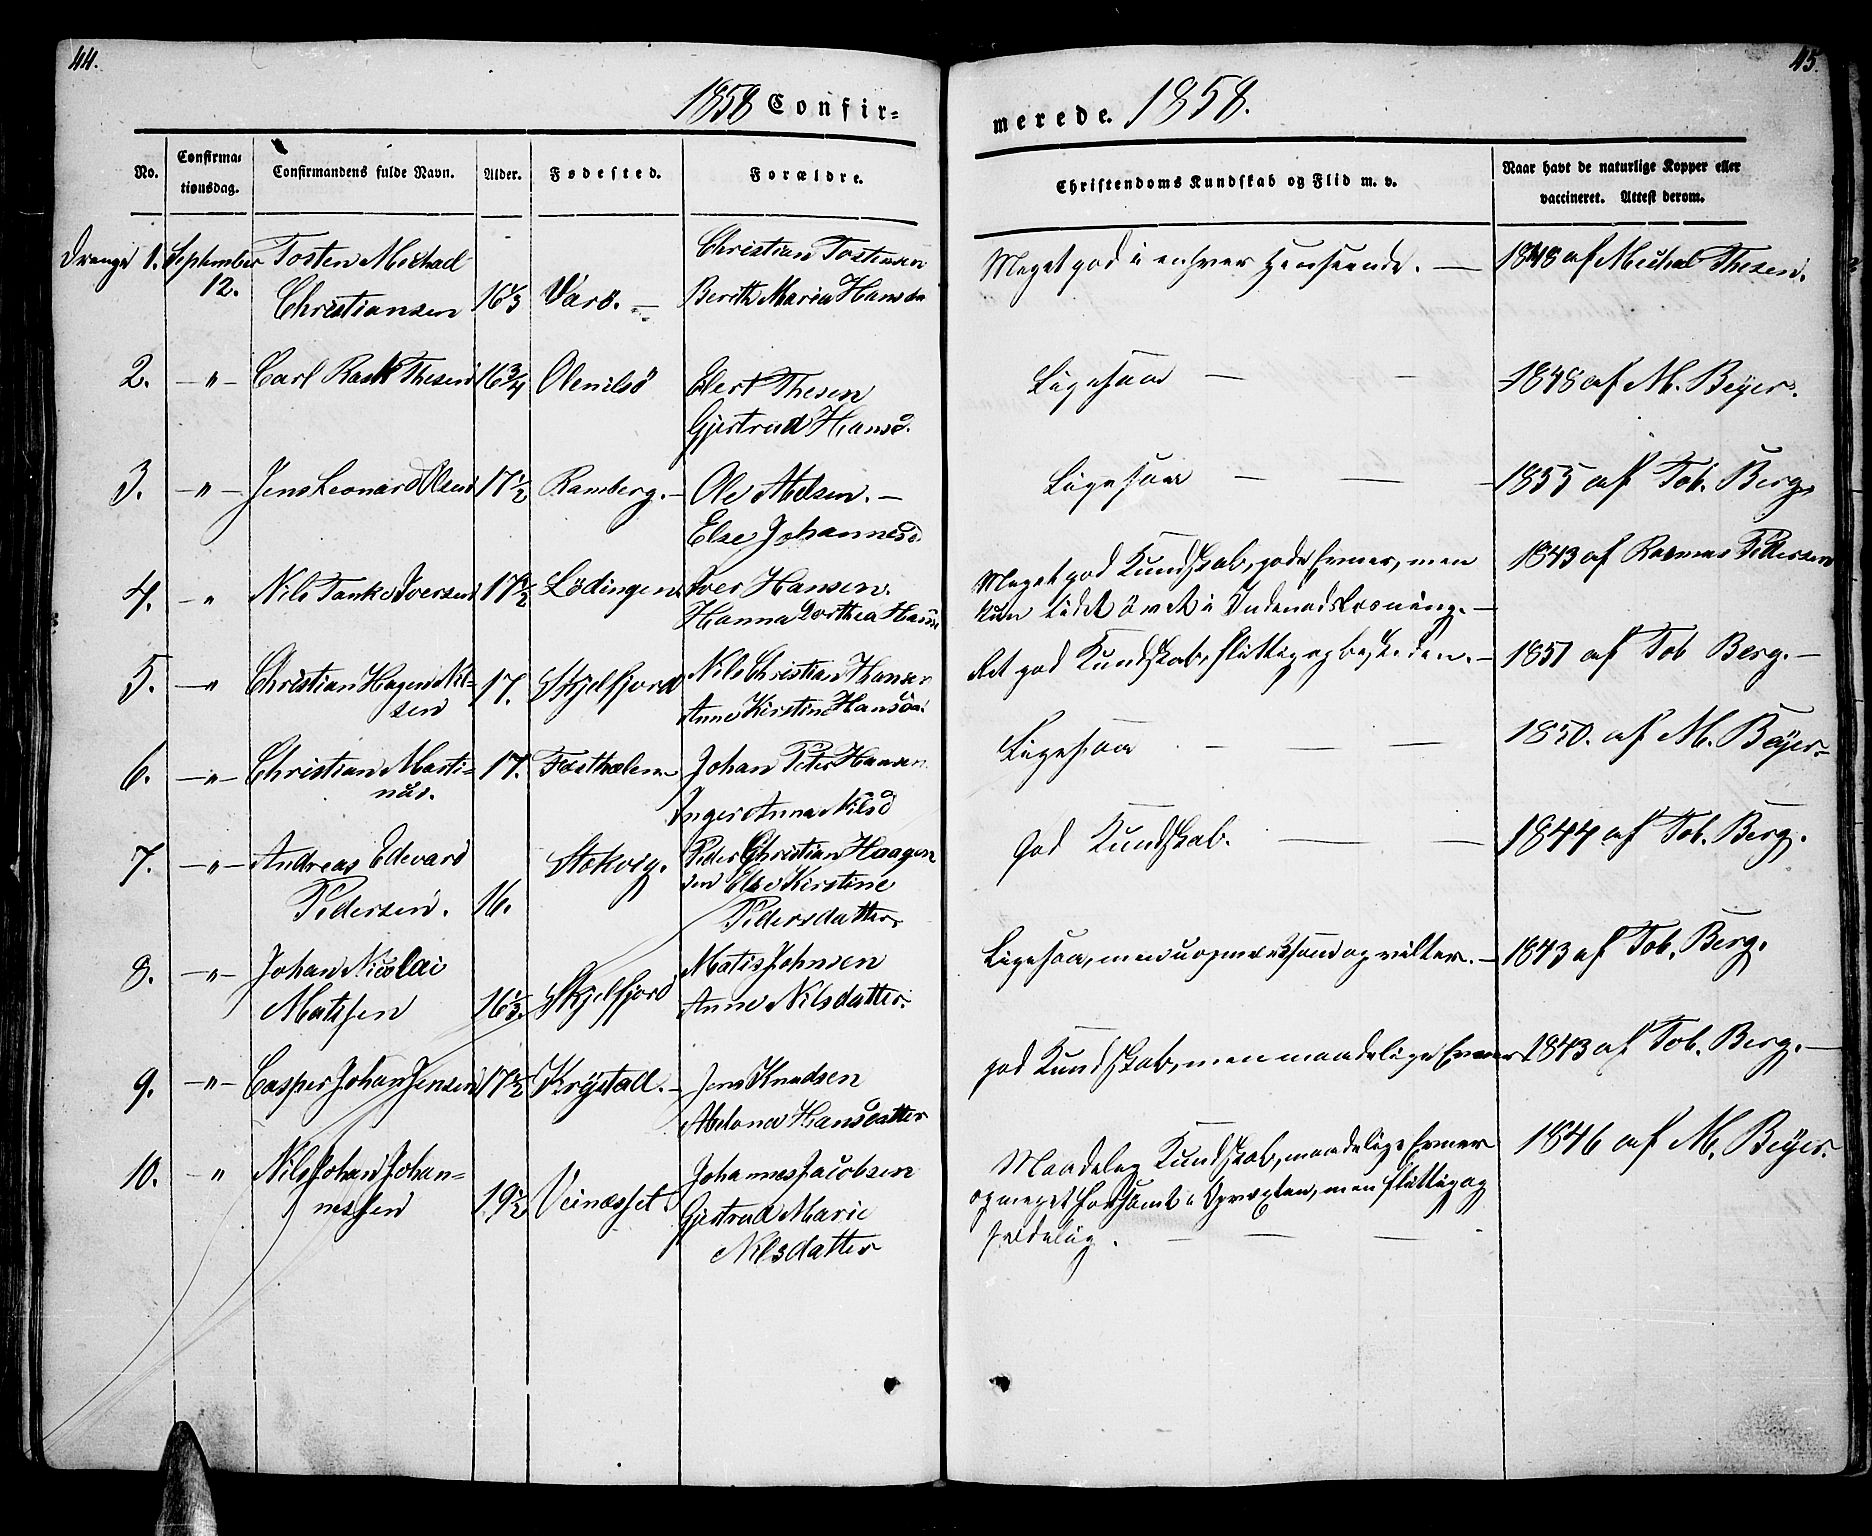 44.
1858 Confir-
No.
Confirma-
tionsdag.
Confirmandens fulde Navn.
Alder.
Fødested.
Forældre.
Drenge 1. September Tosten Michael
12. Christiansen 16 1/3 Værö. —
Christian Tostensen
Berith Maria Hansda
2. — " — Carl Rask Thesen 16 3/4 Olenilsö
Elert Thesen
Gjertrud Hansd.
3. — " — Jens Leonard Olsen 17 1/2 Ramberg. —
Ole Abelsen. —
Else Johannesd.
4. — " Nils Tanke Iversen 17 1/2 Lödingen
Iver Hansen.
Hanna Dorthea Hansd
5. — " Christian Hagen Nil-
sen 17. Skjelfjord
Nils Christian Hansen
Anne Kirstine Hansda.
6. — " — Christian Marti-
nus. 17.
Johan Peter Hansen
Inger Anna Nilsd
7. — " — Andreas Edevard
Pedersen. 16. Stokvig.
Peder Christian Haagen
sen Else Kirstine
Pedersdatter.
8. — " — Johan Nicolai
Matisen 16 1/3. Skjelfjord
Matis Johnsen
Anne Nilsdatter.
9. — " — Casper Johan Jensen 17 1/2 Krystad. —
Jens Knudsen
Abelona Hansdatter
10. — " Nils Johan Johan-
nessen 19 1/2 Veinæsset
Johannes Jacobsen
Gjertrud Marie
Nilsdatter
45.
merede. 1858.
Christendoms Kundskab og Flid m. v.
Naar havt de naturlige Kopper eller
vaccineret. Attest derom.
Meget god i enhver Henseende. — 1848 af Michael Thesen.
Ligesaa — — 1848 af M. Beyer.
Ligesaa — — — 1855 af Tob. Berg.
Meget god Kundskab, gode Evner, men
kun lidet övet i Indenadslæsning. —
1843 af Rasmus Pedersen
Ret god Kundskab, flittig og beskeden. — 1851 af Tob Berg. —
Ligesaa — — — 1850. af M. Beyer —
God Kundskab. — — — 1844 af Tob. Berg.
Ligesaa, men uopmærksom og vilter. — 1843 af Tob. Berg.
God Kundskab, men maadelige Evner 1843 af Tob. Berg. —
Maadelig Kundskab, maadelige Evner
og meget forsömt i Opvæxten, men flittig og
sædelig. — — —
1846 af M. Beyer.